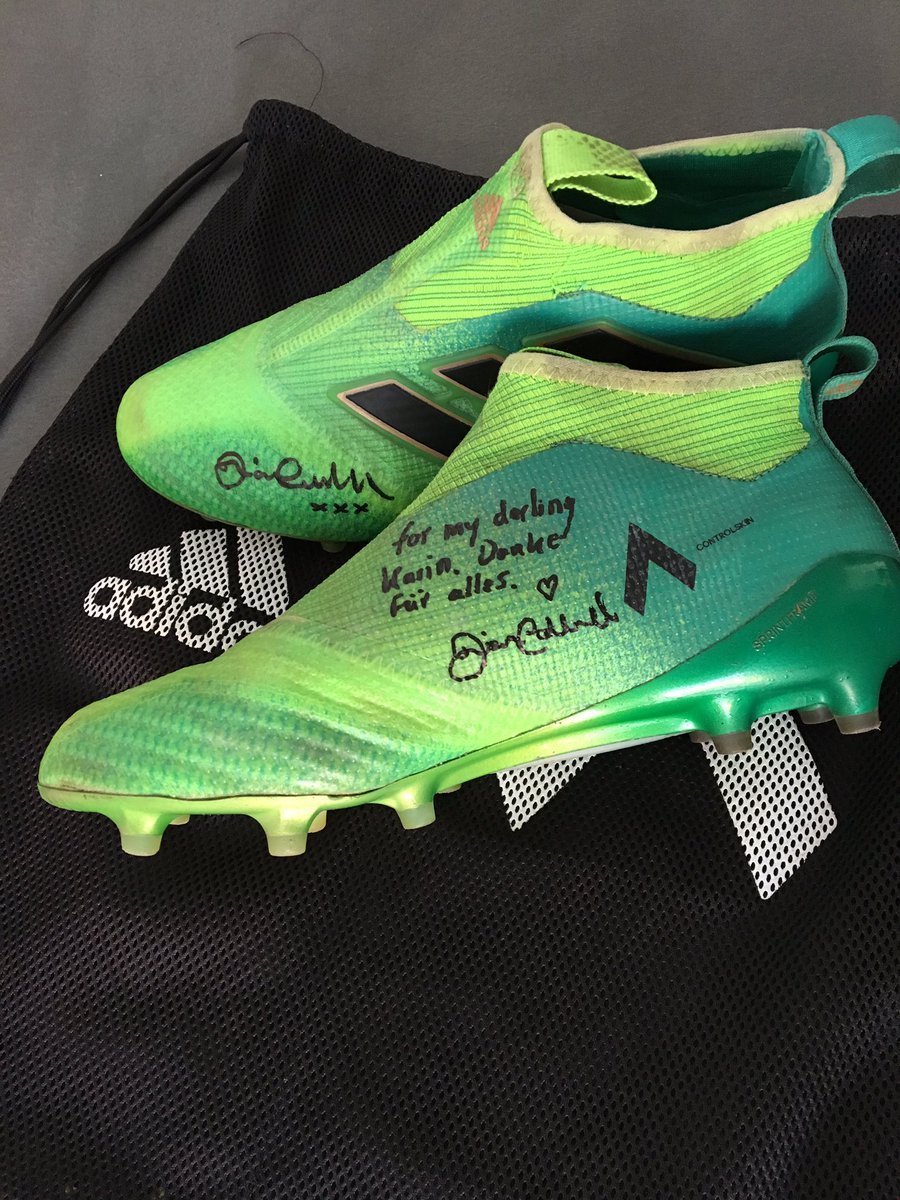 xxx
for my darling
Karin. Danke
für alles. ♡
CONTROLSKIN
SPRINTFRAME
adidas